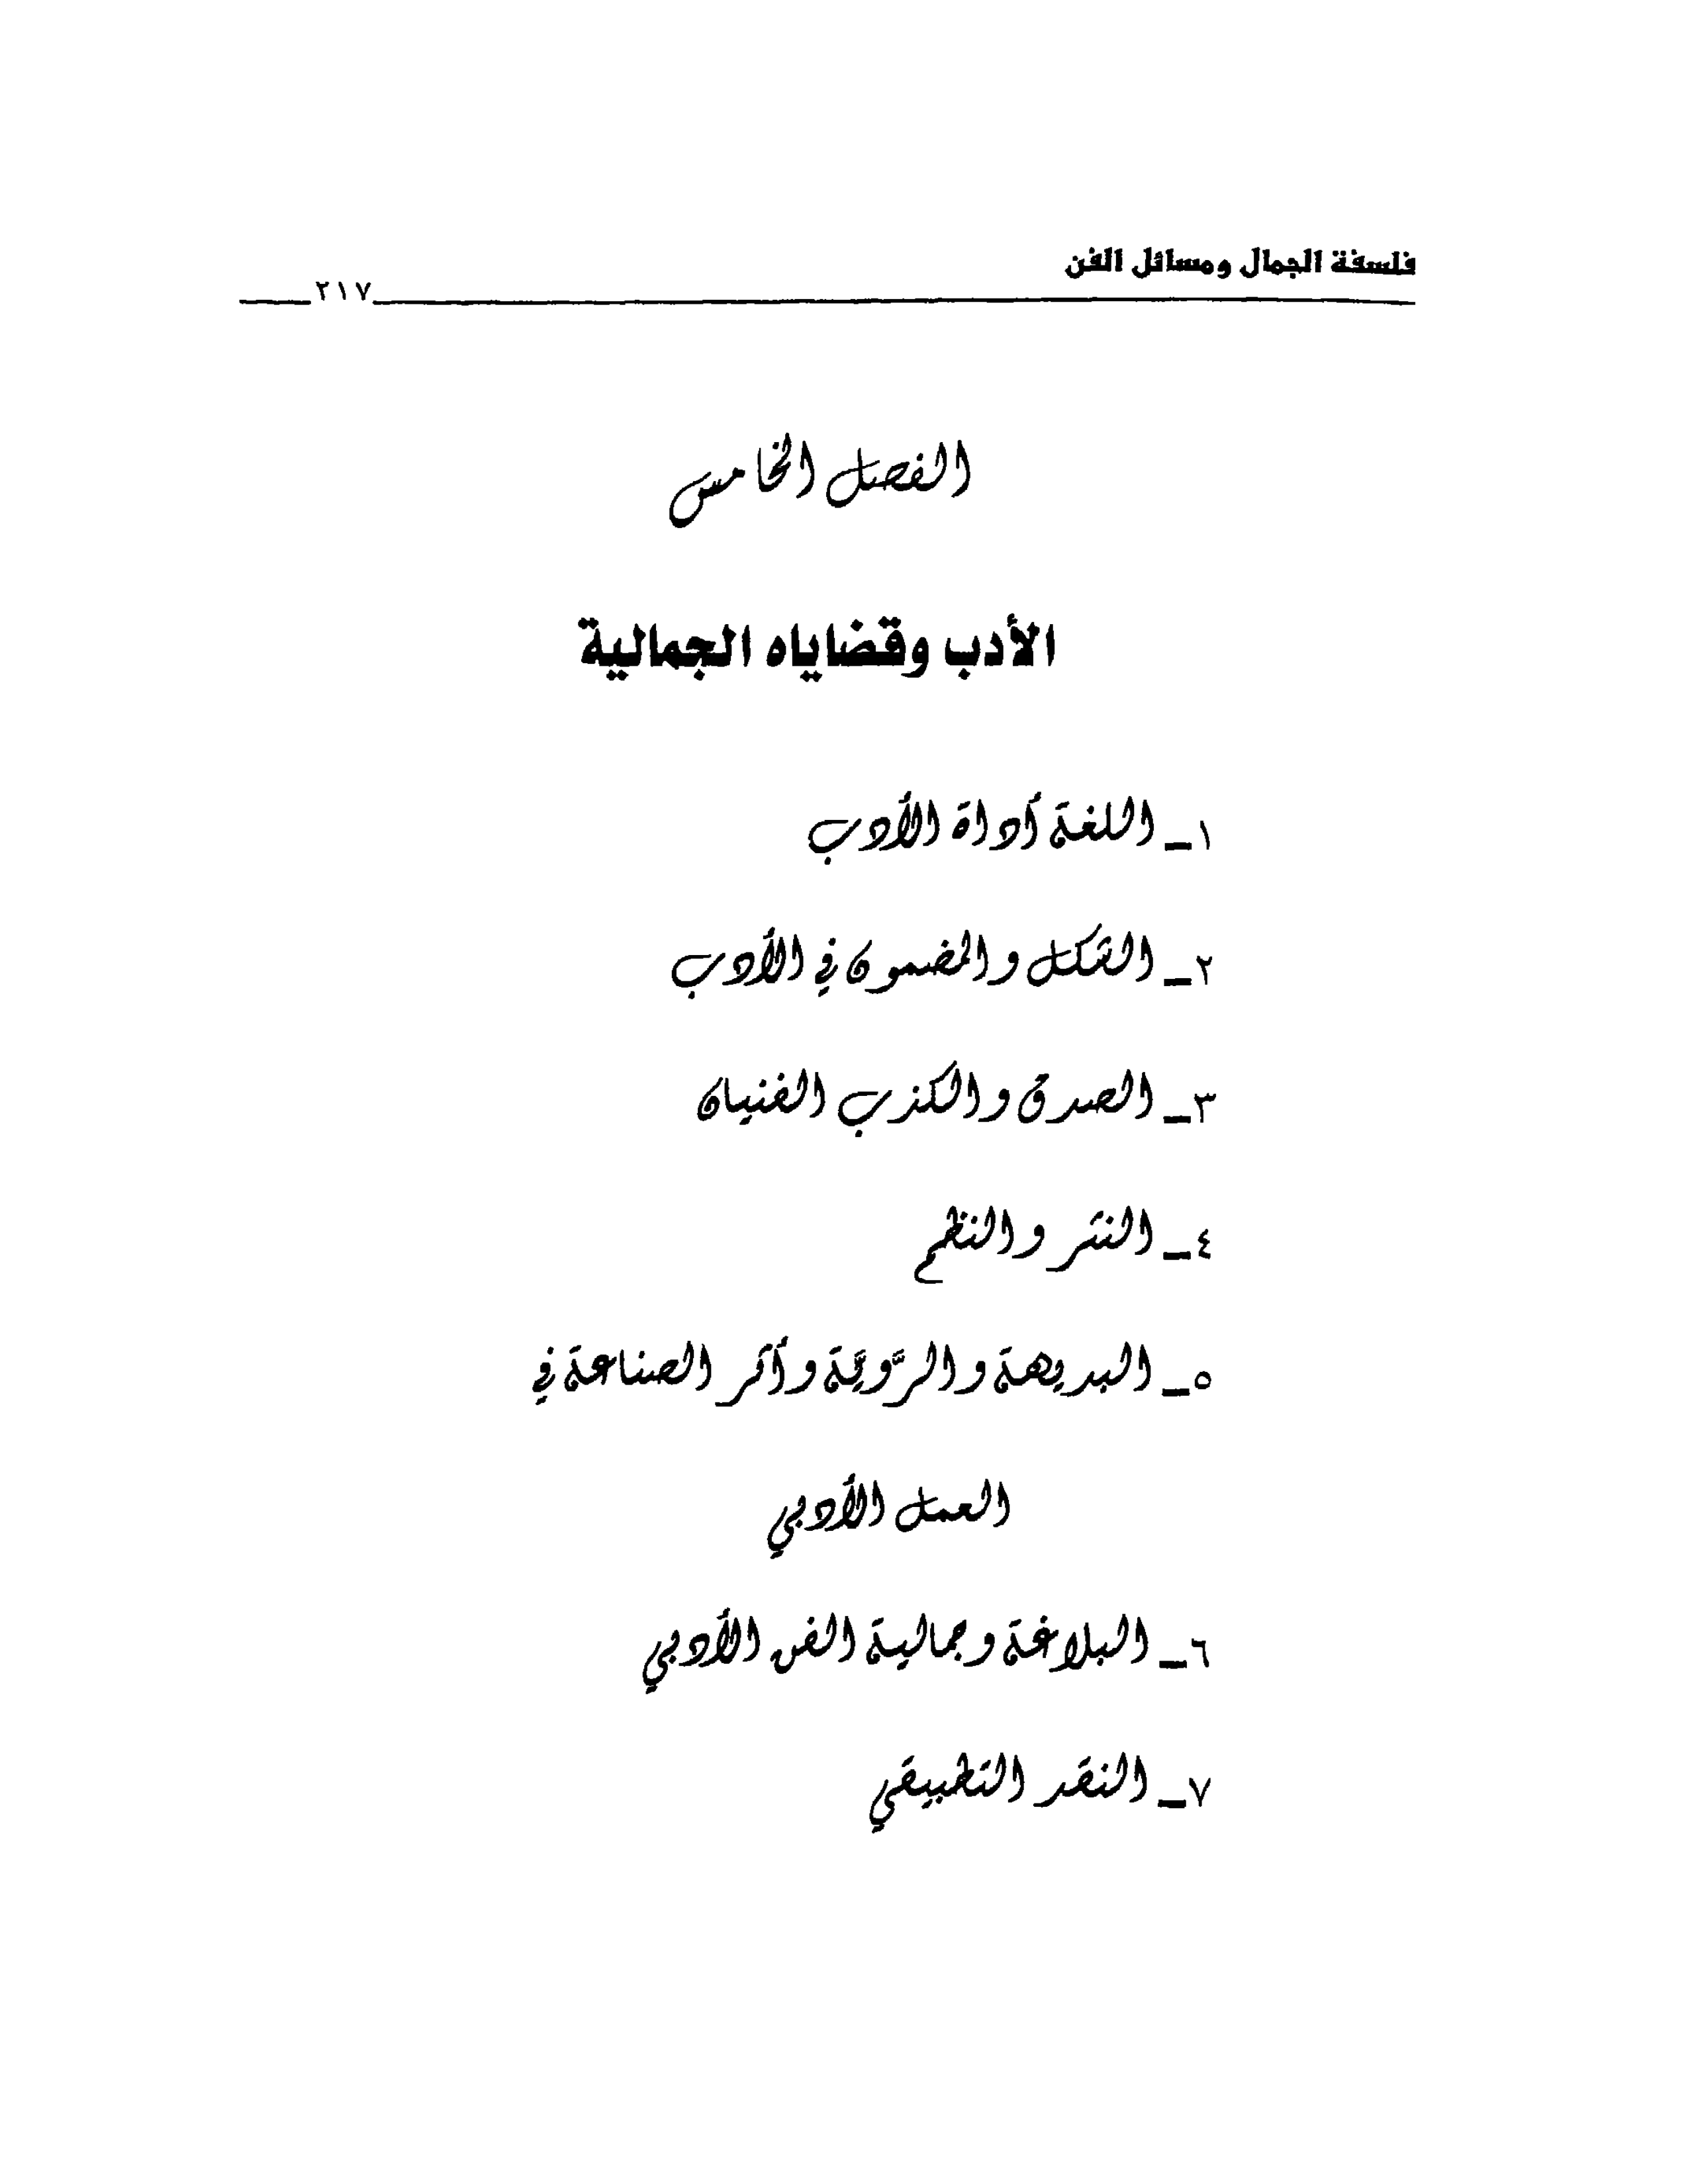 فلسفة الجمال ومسائل الفن
٢١٧
الفصل الخامس
الأدب وقضاياه الجمالية
١ـ اللغة أداة الأدب
٢ـ الشكل والمضمون في الأدب
٣ـ الصدق والكذب الفنيان
٤ـ النثر والنظم
٥ـ البديهة والرَّويَّة وأثر الصناعة في
العمل الأدبي
٦ـ البلاغة وجمالية الفن الأدبي
٧ـ النقد التطبيقي